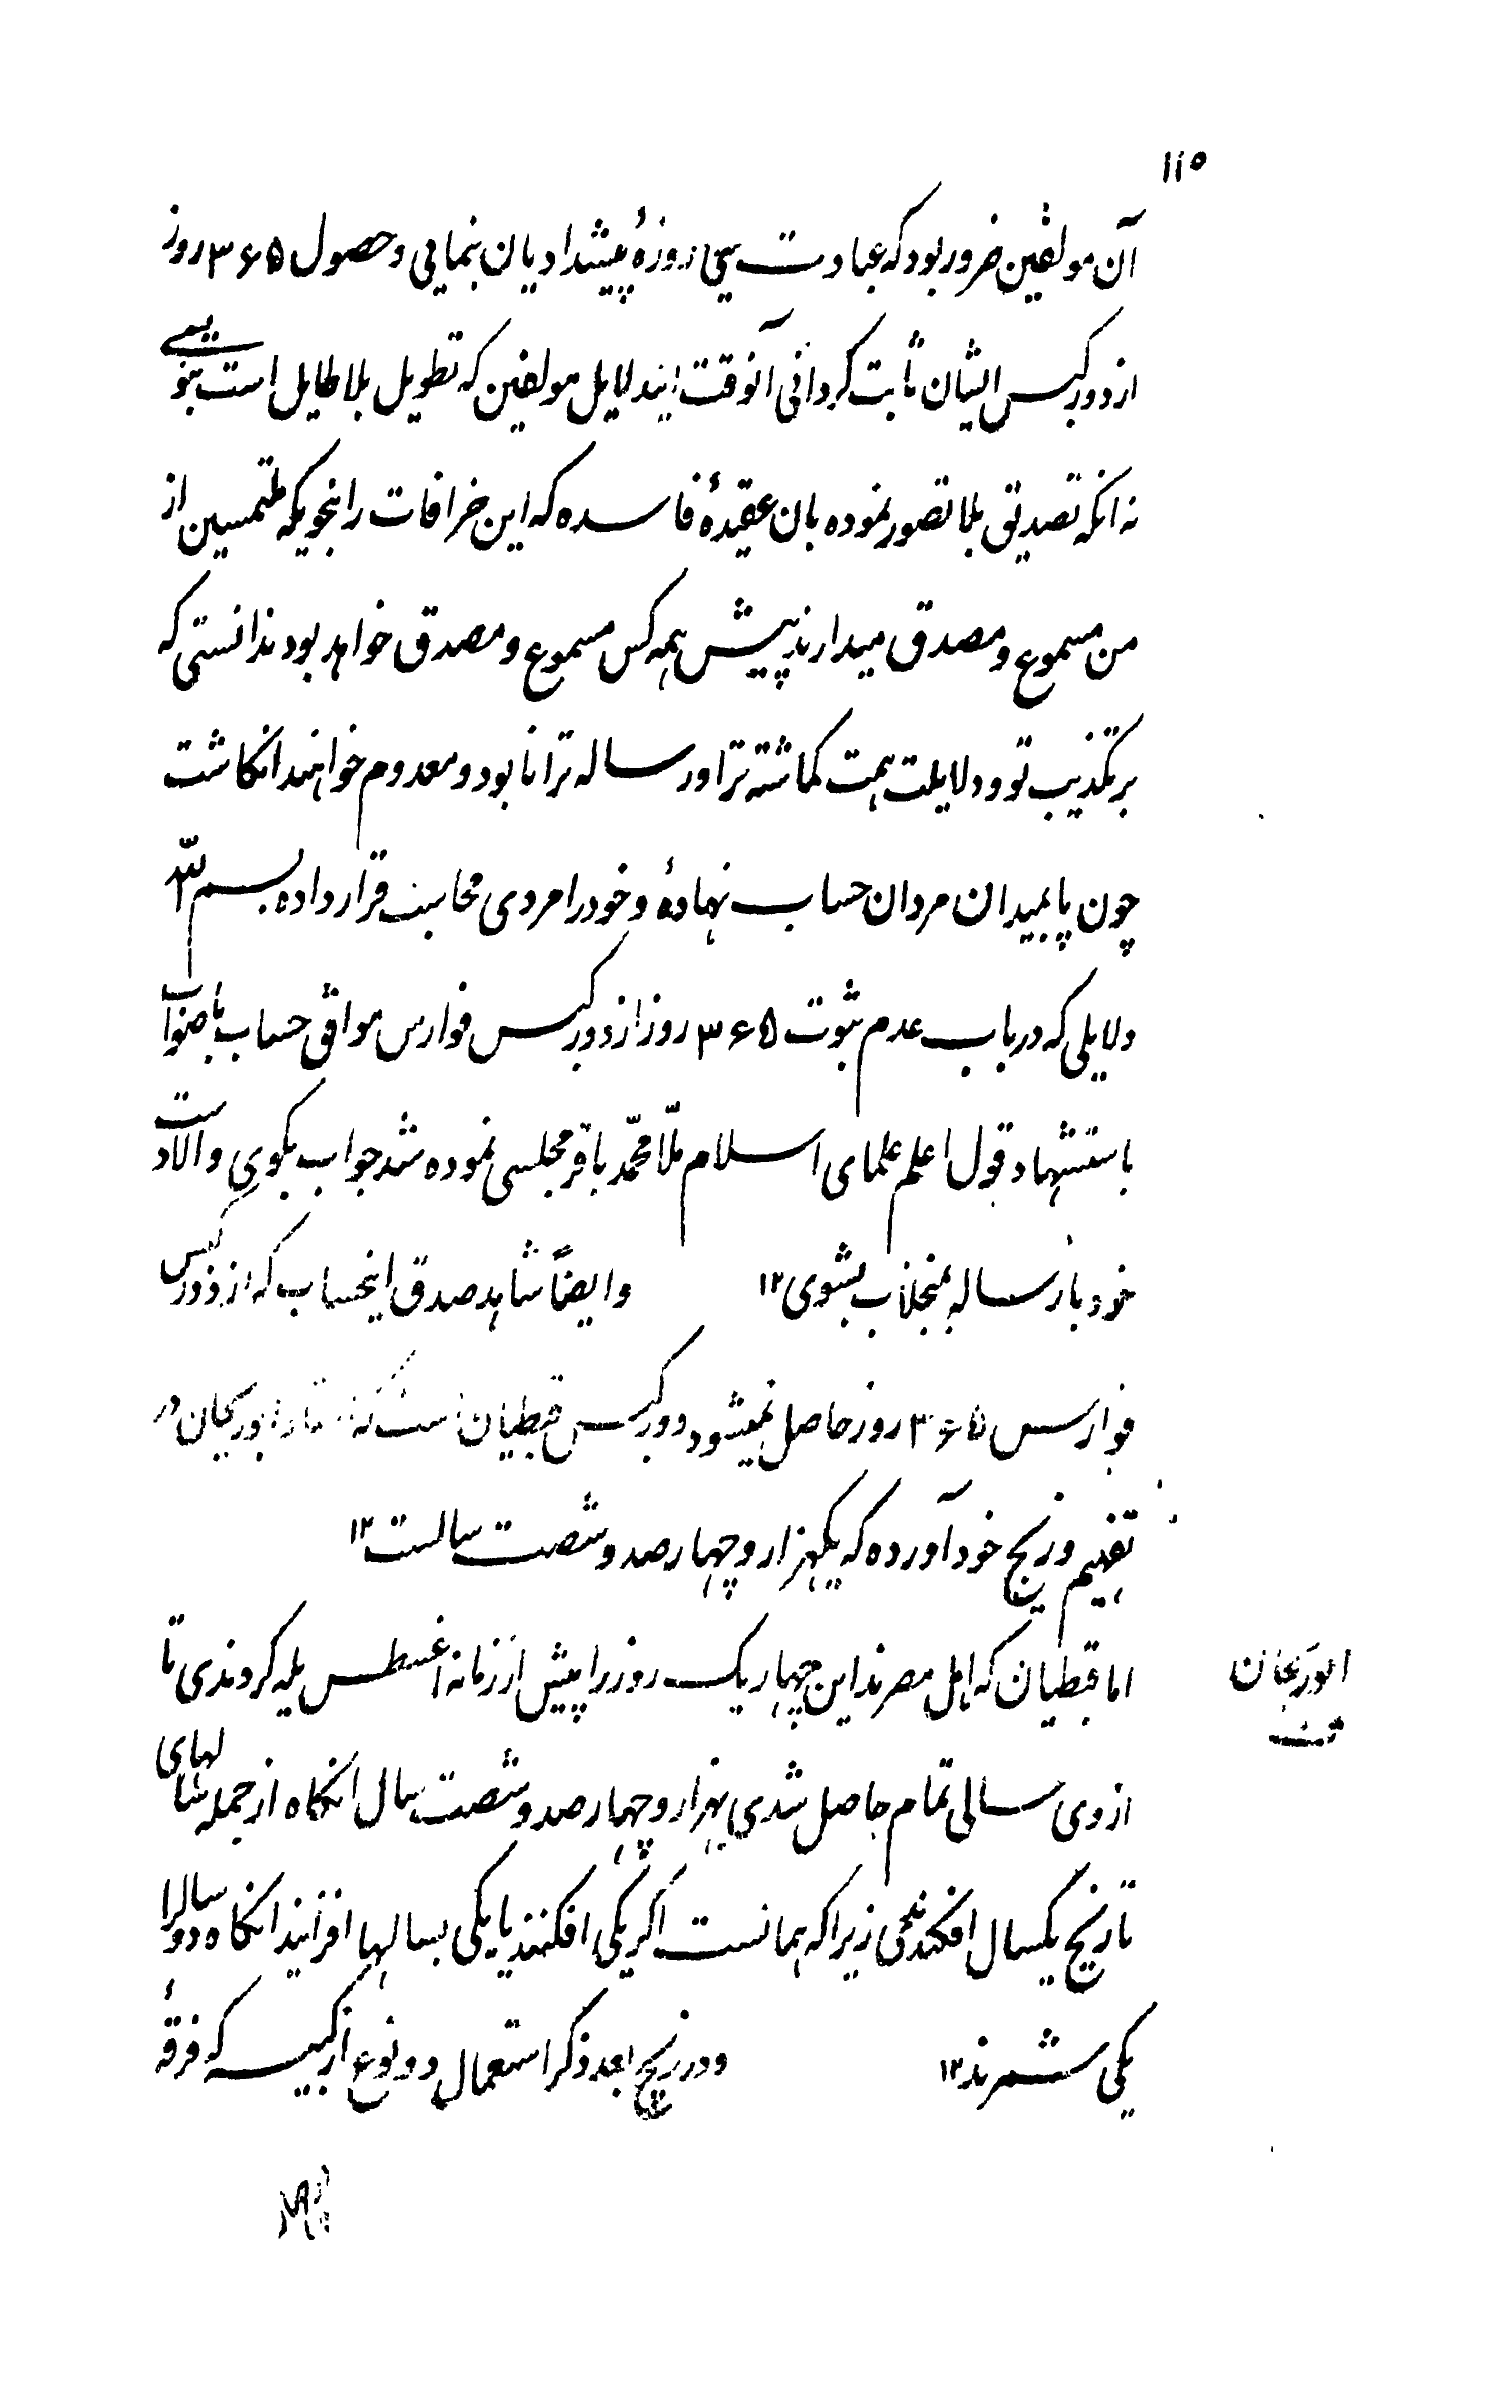 ١١٥
آن مولفین ضرور بود که عبادت سی روزهٔ پیشدادیان بنمایی و حصول ۳۶۵ روز
از دور کبس ایشان ثابت گردانی آنوقت ایند لایل مولفین که تطویل بلا طایل است بنویسی
نه انکه تصدیق بلا تصور نموده بان عقیدهٔ فاسده که این خرافات را بنحویکه ملتمسین از
من مسموع و مصدق میدارند پیش همه کس مسموع و مصدق خواهد بود ندانستی که
بر تکذیب تو و دلایلت همت گماشته ترا و رساله ترا نابود و معدوم خواهند انگاشت
چون پا بمیدان مردان حساب نهادهٔ و خود را مردی محاسب قرار داده بسم الله
دلایلی که در باب عدم ثبوت ۳۶۵ روز از دور کبس فوارس موافق حساب با صواب
باستشهاد قول اعلم علمای اسلام ملّا محمّد باقر مجلسی نموده شد جواب بکوی والا دست
خود با رساله بمنجلاب بشوی ۱۲ وایضاً شاهد صدق اینحساب که از دور کبس
فوارس ۳۶۵ روز حاصل نمیشود دور کبس قبطیان است که ابوریحان در
تفهیم و زیج خود آورده که یکهزار و چهار صد و شصت سالست ۱۲
اما قبطیان که اهل مصرند این چهار یک روز را پیش از زمانه اغسطس یله کردندی تا
از وی سالی تمام حاصل شدی بهزار و چهار صد و شصت سال انگاه از جمله سالهای
تاریخ یکسال افکندندی زیرا که همانست اگر یکی افکنند یا یکی بسالها افزایند انگاه دو سال را
یکی شمرند ۱۲ و در زیج بعد ذکر استعمال دو نوع از کبیسه که فرقهٔ
ابوریحان